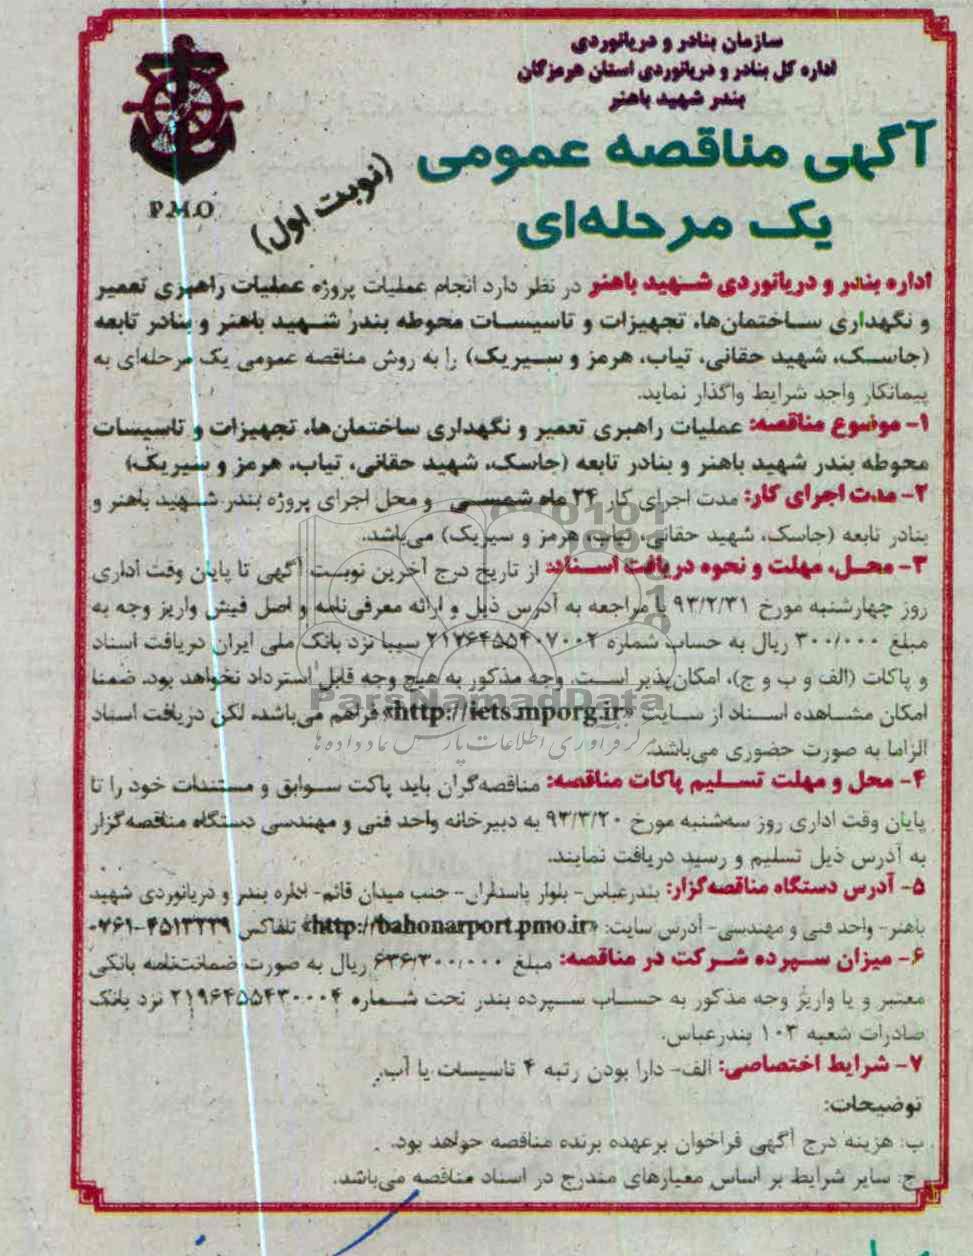 سازمان بنادر و دریانوردی
اداره کل بنادر و دریانوردی استان هرمزگان
بندر شهید باهنر
P.M.O
آگهی مناقصه عمومی
یک مرحله‌ای
(نوبت اول)
اداره بندر و دریانوردی شهید باهنر در نظر دارد انجام عملیات پروژه عملیات راهبری تعمیر
و نگهداری ساختمان‌ها، تجهیزات و تاسیسات محوطه بندر شهید باهنر و بنادر تابعه
(جاسک، شهید حقانی، تیاب، هرمز و سیریک) را به روش مناقصه عمومی یک مرحله‌ای به
پیمانکار واجد شرایط واگذار نماید.
۱- موضوع مناقصه: عملیات راهبری تعمیر و نگهداری ساختمان‌ها، تجهیزات و تاسیسات
محوطه بندر شهید باهنر و بنادر تابعه (جاسک، شهید حقانی، تیاب، هرمز و سیریک)
۲- مدت اجرای کار: مدت اجرای کار ۲۴ ماه شمسی و محل اجرای پروژه بندر شهید باهنر و
بنادر تابعه (جاسک، شهید حقانی، تیاب، هرمز و سیریک) می‌باشد.
۳- محل، مهلت و نحوه دریافت اسناد: از تاریخ درج آخرین نوبت آگهی تا پایان وقت اداری
روز چهارشنبه مورخ ۹۳/۲/۳۱ با مراجعه به آدرس ذیل و ارائه معرفی‌نامه و اصل فیش واریز وجه به
مبلغ ۳۰۰/۰۰۰ ریال به حساب شماره ۲۱۷۶۴۵۵۴۰۷۰۰۲ سیبا نزد بانک ملی ایران دریافت اسناد
و پاکات (الف و ب و ج)، امکان‌پذیر است. وجه مذکور به هیچ وجه قابل استرداد نخواهد بود. ضمنا
امکان مشاهده اسناد از سایت «http://iets.mporg.ir» فراهم می‌باشد، لکن دریافت اسناد
الزاما به صورت حضوری می‌باشد.
ParsNamadData
مرکز فرآوری اطلاعات پارس نماد داده ها
۴- محل و مهلت تسلیم پاکات مناقصه: مناقصه‌گران باید پاکت سوابق و مستندات خود را تا
پایان وقت اداری روز سه‌شنبه مورخ ۹۳/۳/۲۰ به دبیرخانه واحد فنی و مهندسی دستگاه مناقصه‌گزار
به آدرس ذیل تسلیم و رسید دریافت نمایند.
۵- آدرس دستگاه مناقصه‌گزار: بندرعباس- بلوار پاسداران- جنب میدان قائم- اداره بندر و دریانوردی شهید
باهنر- واحد فنی و مهندسی- آدرس سایت: «http://bahonarport.pmo.ir» تلفاکس ۴۵۱۳۲۲۹-۰۷۶۱
۶- میزان سپرده شرکت در مناقصه: مبلغ ۶۳۶/۳۰۰/۰۰۰ ریال به صورت ضمانتنامه بانکی
معتبر و یا واریز وجه مذکور به حساب سپرده بندر تحت شماره ۲۱۹۶۴۵۵۴۳۰۰۰۴ نزد بانک
صادرات شعبه ۱۰۳ بندرعباس.
۷- شرایط اختصاصی: الف- دارا بودن رتبه ۴ تاسیسات یا آب.
توضیحات:
ب: هزینه درج آگهی فراخوان برعهده برنده مناقصه خواهد بود.
ج: سایر شرایط بر اساس معیارهای مندرج در اسناد مناقصه می‌باشد.